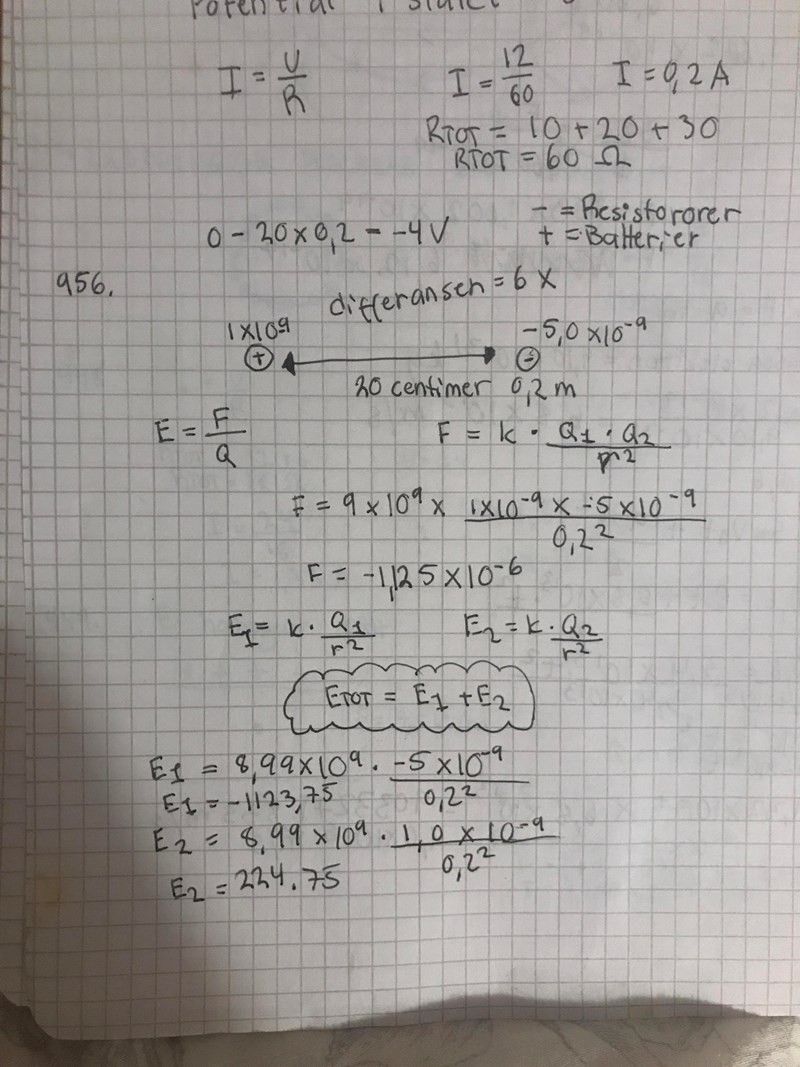 Potential i
I = U/R    I = 12/60    I = 0,2 A
RTOT = 10 + 20 + 30
RTOT = 60 Ω
0 - 20 x 0,2 = -4V    - = Resistororer
+ = Batterier
956.
differansen = 6 x
1x10⁹    -5,0 x10⁻⁹
+    -
20 centimer 0,2 m
E = F/Q    F = k · Q1 · Q2 / r²
F = 9 x 10⁹ x 1x10⁻⁹ x -5 x10⁻⁹ / 0,2²
F = -1,125 x10⁻⁶
E1 = k · Q1/r²    E2 = k · Q2/r²
ETOT = E1 + E2
E1 = 8,99x10⁹ · -5 x10⁻⁹ / 0,2²
E1 = -1123,75
E2 = 8,99 x10⁹ · 1,0 x 10⁻⁹ / 0,2²
E2 = 224.75